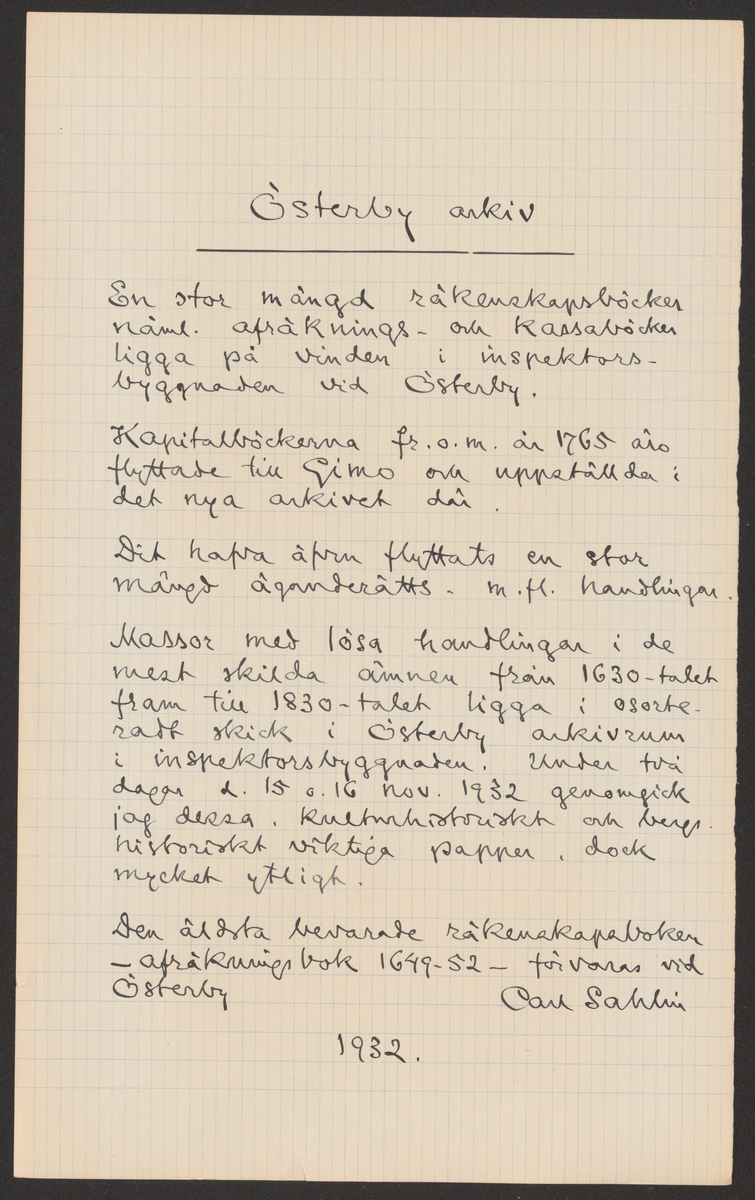 Österby arkiv
En stor mängd räkenskapsböcker
näml. afräknings- och kassaböcker
ligga på vinden i inspektors-
byggnaden vid Österby.
Kapitalböckerna fr.o.m. år 1765 äro
flyttade till Gimo och uppställda i
det nya arkivet där.
Dit hafva äfven flyttats en stor
mängd äganderätts- m.fl. handlingar.
Massor med lösa handlingar i de
mest skilda ämnen från 1630-talet
fram till 1830-talet ligga i osorte-
radt skick i Österby arkivrum
i inspektorsbyggnaden. Under två
dagar d. 15 o. 16 nov. 1932 genomgick
jag dessa, kulturhistoriskt och bergs-
historiskt viktiga papper, dock
mycket ytligt.
Den äldsta bevarade räkenskapsboken
– afräkningsbok 1649-52 – förvaras vid
Österby Carl Sahlin
1932.